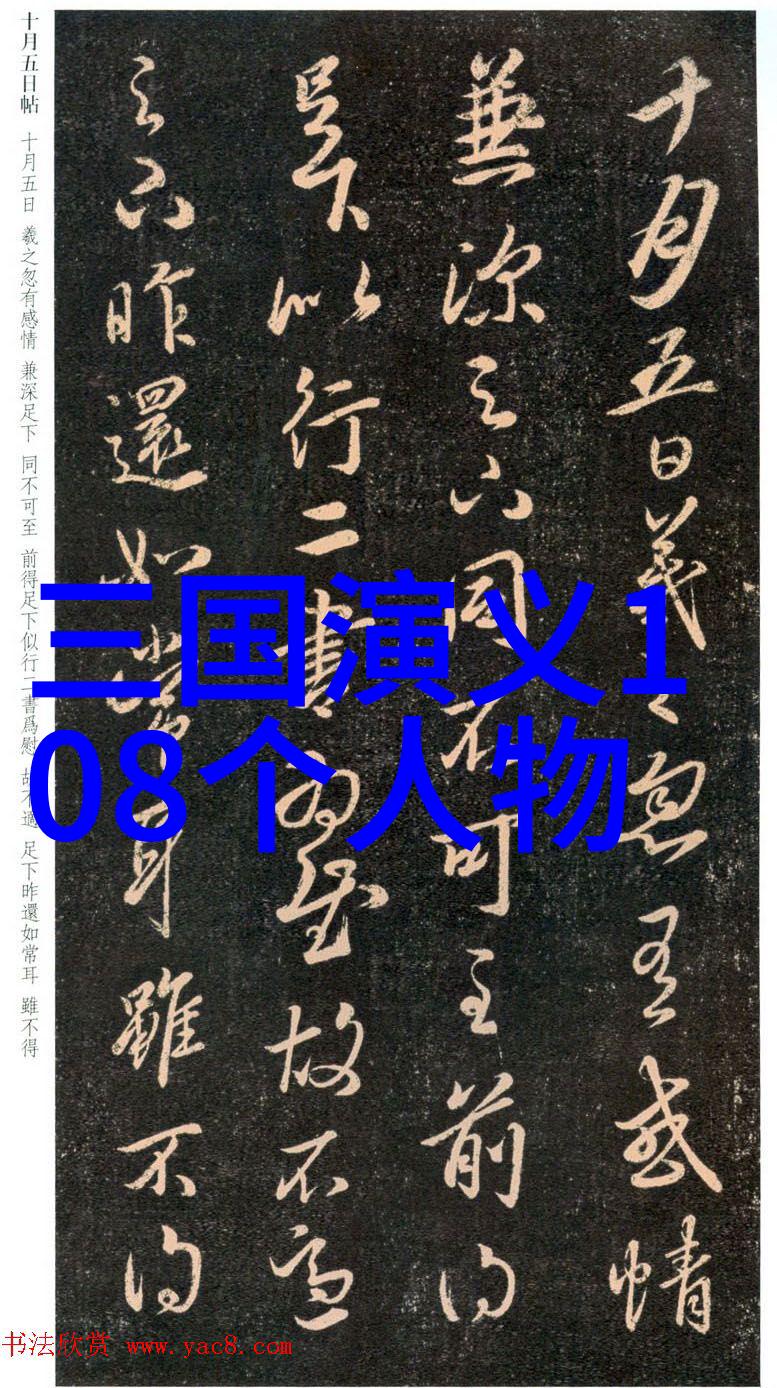 十月五日羲之忽有感情
兼深足下同不可至前得
足下似行二書爲慰故不適
足下昨還如常耳雖不得
十月五日帖 十月五日 羲之忽有感情 兼深足下 同不可至 前得足下似行二書爲慰 故不適 足下昨還如常耳 雖不得
三国演义1
08个人物
书法欣赏 www.yac8.com